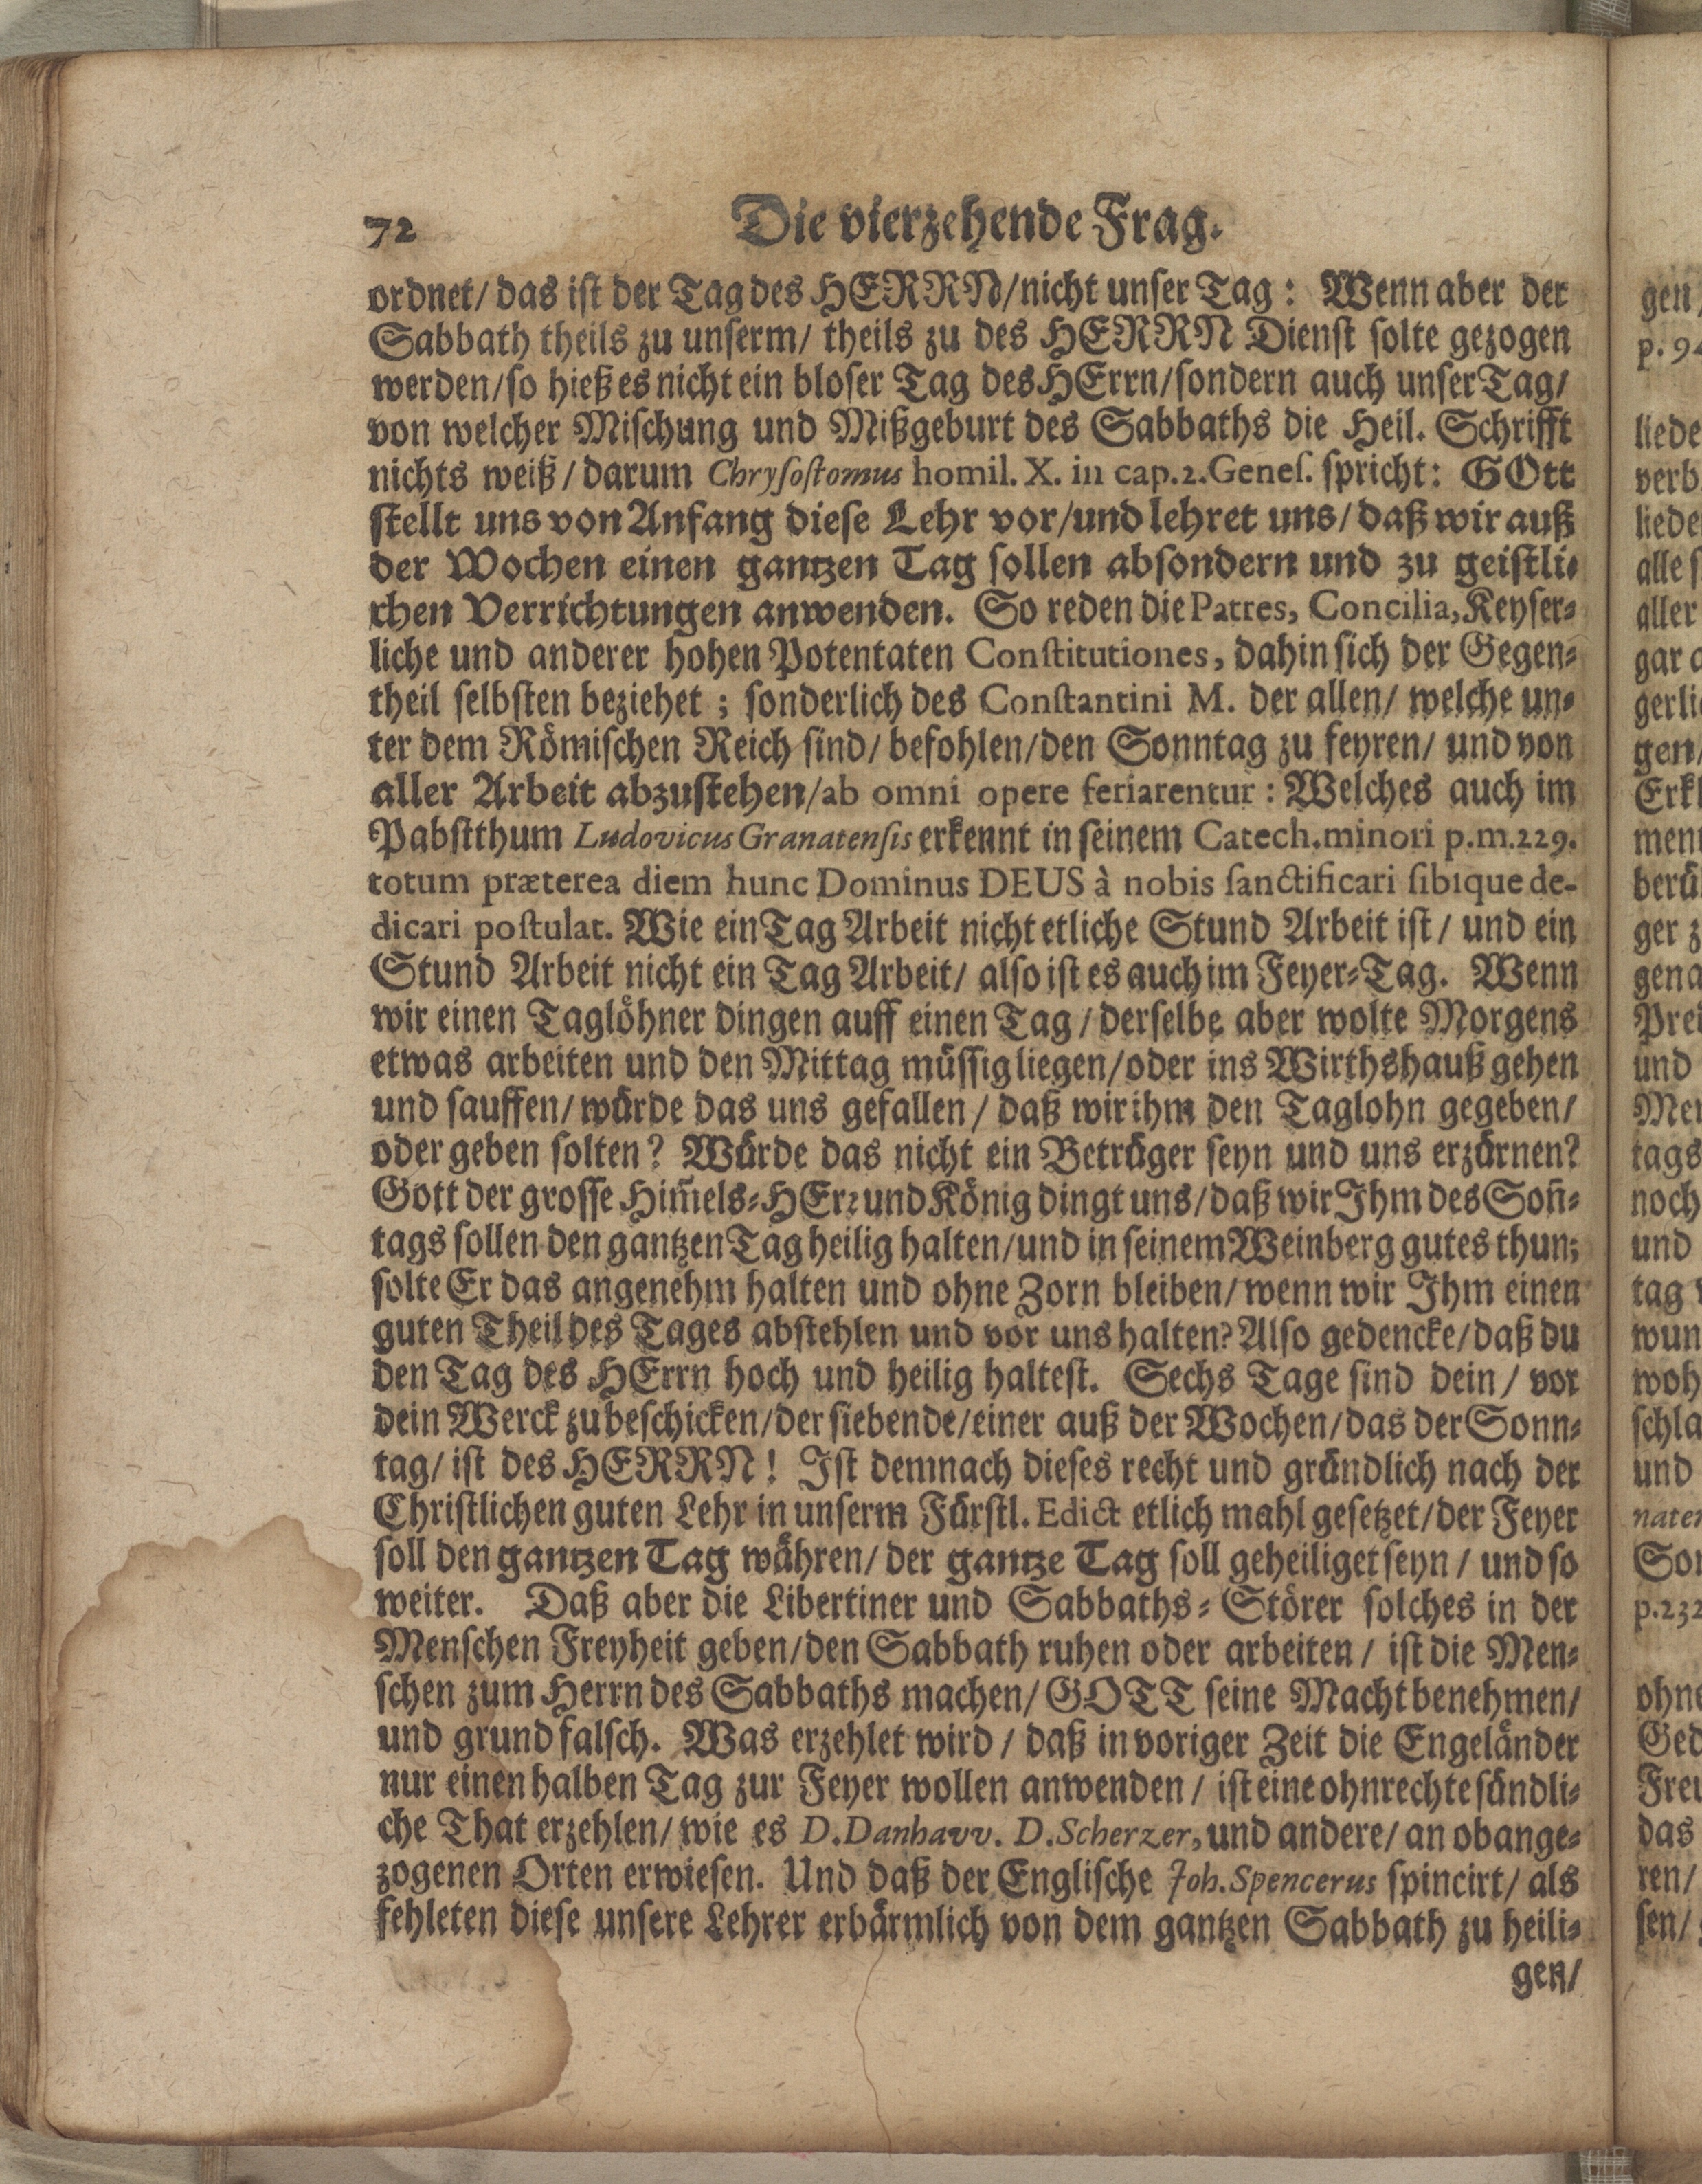 72 Die vierzehende Frag.
ordnet/ das ist der Tag des HERRN/nicht unser Tag: Wenn aber der
Sabbath theils zu unserm/ theils zu des HERRN Dienst solte gezogen
werden/so hieß es nicht ein bloser Tag des HErrn/sondern auch unser Tag/
von welcher Mischung und Mißgeburt des Sabbaths die Heil. Schrifft
nichts weiß/darum Chrysostomus homil. X. in cap.2.Genes. spricht: GOtt
stellt uns von Anfang diese Lehr vor/und lehret uns/daß wir auß
der Wochen einen gantzen Tag sollen absondern und zu geistli-
chen Verrichtungen anwenden. So reden die Patres, Concilia, Keyser-
liche und anderer hohen Potentaten Constitutiones, dahin sich der Gegen-
theil selbsten beziehet; sonderlich des Constantini M. der allen/ welche un-
ter dem Römischen Reich sind/befohlen/den Sonntag zu feyren/ und von
aller Arbeit abzustehen/ab omni opere feriarentur: Welches auch im
Pabstthum Ludovicus Granatensis erkennt in seinem Catech.minori p.m.229.
totum præterea diem hunc Dominus DEUS à nobis sanctificari sibique de-
dicari postulat. Wie ein Tag Arbeit nicht etliche Stund Arbeit ist/ und ein
Stund Arbeit nicht ein Tag Arbeit/ also ist es auch im Feyer-Tag. Wenn
wir einen Taglöhner dingen auff einen Tag/derselbe aber wolte Morgens
etwas arbeiten und den Mittag müssig liegen/oder ins Wirthshauß gehen
und sauffen/würde das uns gefallen/daß wir ihm den Taglohn gegeben/
oder geben solten? Würde das nicht ein Betrüger seyn und uns erzürnen?
Gott der grosse Him̃els-HErr und König dingt uns/daß wir Ihm des Soñ-
tags sollen den gantzen Tag heilig halten/und in seinem Weinberg gutes thun;
solte Er das angenehm halten und ohne Zorn bleiben/wenn wir Ihm einen
guten Theil des Tages abstehlen und vor uns halten? Also gedencke/daß du
den Tag des HErrn hoch und heilig haltest. Sechs Tage sind dein/ vor
dein Werck zu beschicken/der siebende/einer auß der Wochen/das der Sonn-
tag/ist des HERRN! Ist demnach dieses recht und gründlich nach der
Christlichen guten Lehr in unserm Fürstl. Edict etlich mahl gesetzet/der Feyer
soll den gantzen Tag währen/der gantze Tag soll geheiliget seyn/ und so
weiter. Daß aber die Libertiner und Sabbaths-Störer solches in der
Menschen Freyheit geben/den Sabbath ruhen oder arbeiten/ ist die Men-
schen zum Herrn des Sabbaths machen/ GOTT seine Macht benehmen/
und grund falsch. Was erzehlet wird/daß in voriger Zeit die Engeländer
nur einen halben Tag zur Feyer wollen anwenden/ ist eine ohnrechte sündli-
che That erzehlen/wie es D.Danhavv. D.Scherzer, und andere/an obange-
zogenen Orten erwiesen. Und daß der Englische Joh.Spencerus spincirt/ als
fehleten diese unsere Lehrer erbärmlich von dem gantzen Sabbath zu heili-
gen/
gen/
p. 94
liede
verb
liede
alle s
aller
gar
gerli
gen/
Erkl
berü
ger z
gena
Prei
und
tags
noch
und
tag
wun
woh
schla
und
p.232
ohne
Ged
das
ren/
sen/